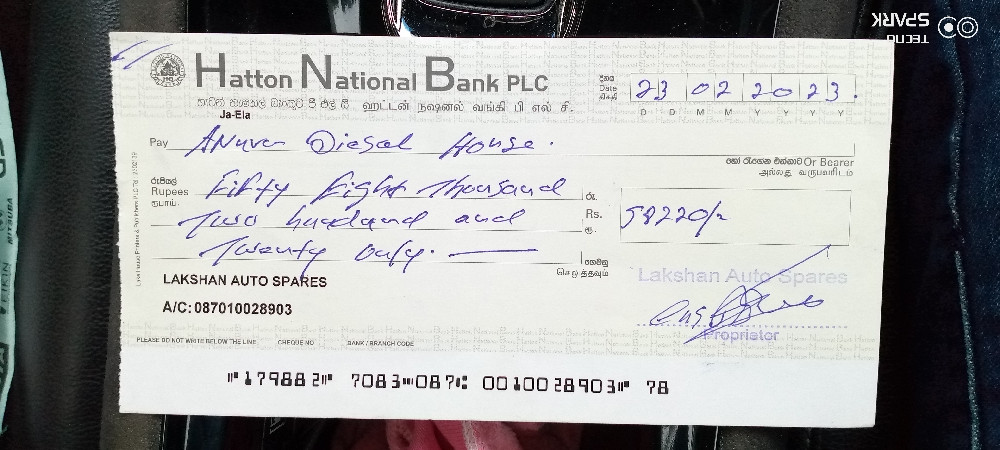 TECNO
SPARK
Hatton National Bank PLC
හැටන් නැෂනල් බැංකුව පී එල් සී ஹட்டன் நஷனல் வங்கி பி எல் சி.
Ja-Ela
දිනය
Date
திகதி
23 02 2023.
D D M M Y Y Y Y
Pay Anura Diesal House.
හෝ රැගෙන එන්නාට Or Bearer
அல்லது வருபவரிடம்
රුපියල්
Rupees Fifty Eight Thousand
ரூபாய்
Two hundand and
Twenty only.
රු.
Rs. 58220/=
ரூ.
ගෙවනු
செலுத்தவும்
LAKSHAN AUTO SPARES
A/C: 087010028903
Lakshan Auto Spares
Proprietor
PLEASE DO NOT WRITE BELOW THE LINE CHEQUE NO BANK / BRANCH CODE
⑈179882⑈ 7083⑉087⑆ 0010028903⑈ 78